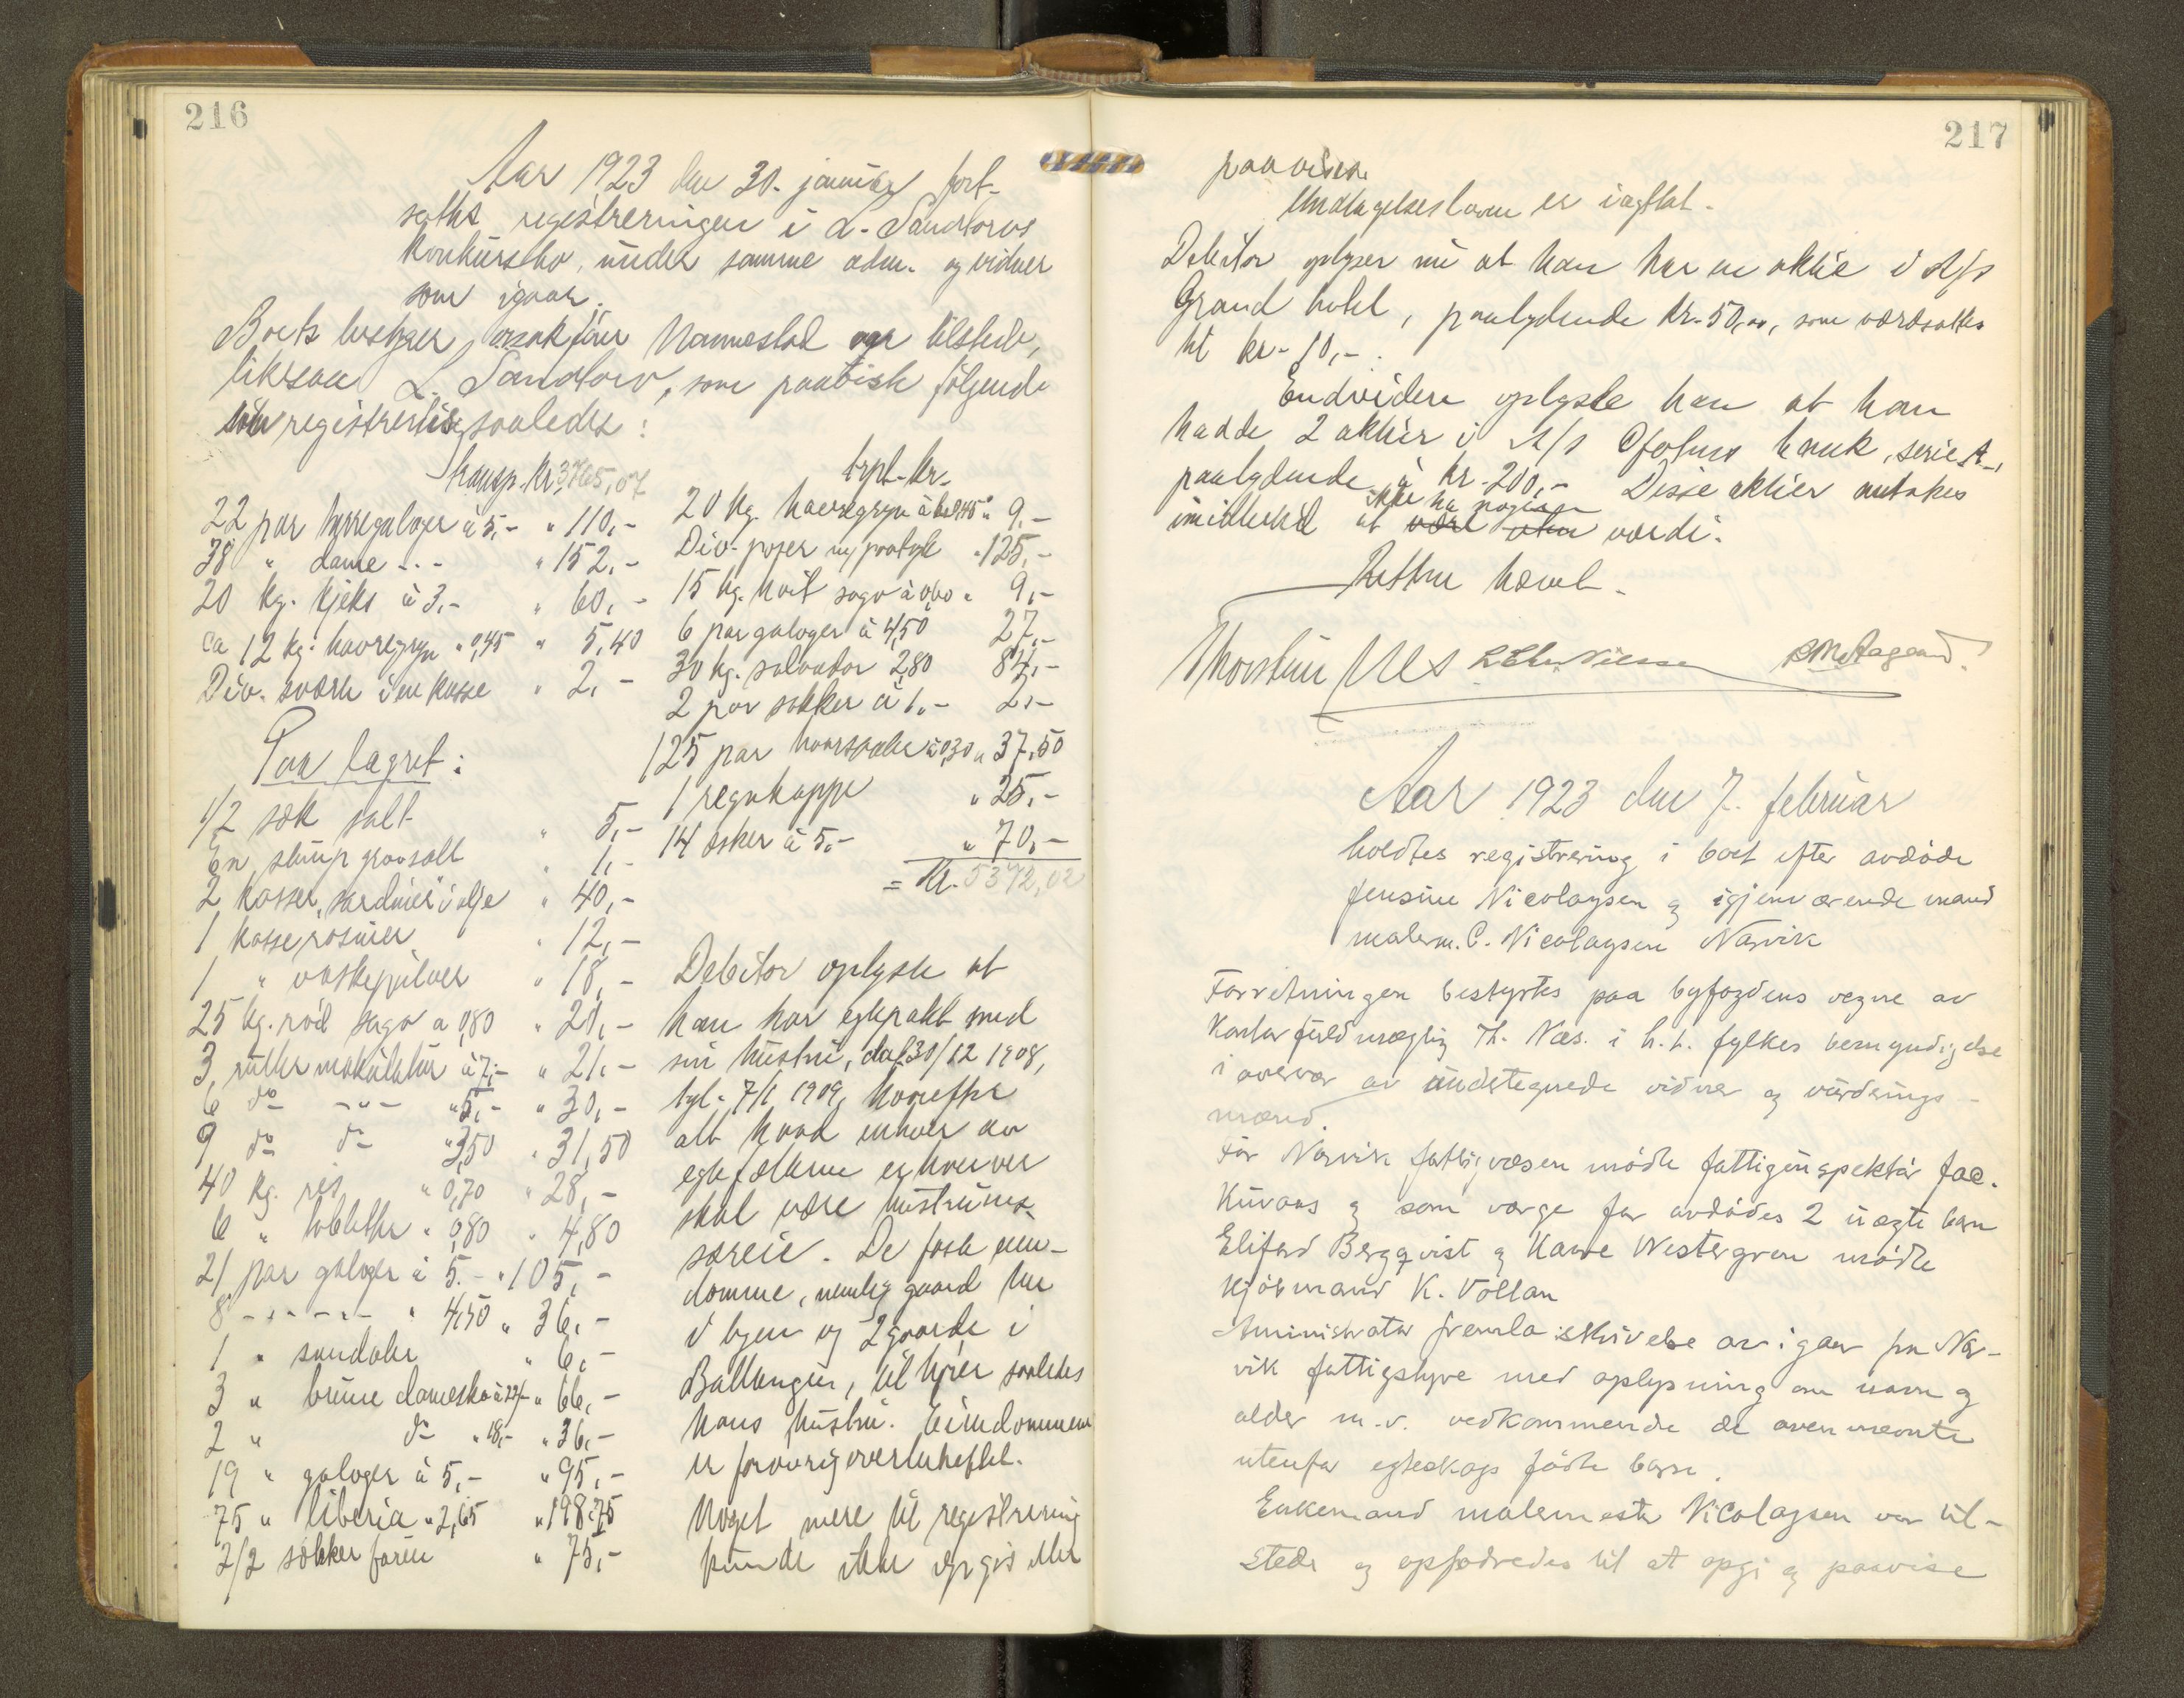 216
Aar 1923 den 30. januar fort-
sattes registreringen i L. Sandtorvs
konkursbo, under samme adm. og vidner
som igaar.
Boets bestyrer, saksfører Mannestad var tilstede,
likesaa L. Sandtorv, som paaviste følgende
som registrertes saaledes:
Transp. kr. 3765,07
22 par herregaloger à 5,- " 110,-
38 " dame - - - " 152,-
20 kg. kjeks à 3,- " 60,-
ca 12 kg. havregryn " 0,45 " 5,40
Div. sværte i en kasse " 2,-
Paa lagret:
1/2 sæk salt " 5,-
En slump grovsalt " 1,-
2 kasser "sardiner" i olje " 40,-
1 kasse rosiner " 12,-
1 " vaskepulver " 18,-
25 kg. rød sago a 0,80 " 20,-
3 ruller makulatur à 7,- " 21,-
6 do - " - " 5,- " 30,-
9 do do " 3,50 " 31,50
40 kg. ris " 0,70 " 28,-
6 " " 0,80 " 4,80
21 par galoger à 5.- " 105,-
8 - " - " - " 4,50 " 36,-
1 " sandaler " 6,-
3 " brune damesko à 22,- " 66,-
2 " do " 18,- " 36,-
19 " galoger à 5,- " 95,-
75 " liberia " 2,65 " 198,75
2/2 sækker farin " 75,-
trpt. kr.
20 kg. havregryn à 0,45 " 9,-
Div. poser m/ paatryk " 125,-
15 kg. hvit sago à 0,60 " 9,-
6 par galoger à 4,50 27,-
30 kg. salvador 2,80 84,-
2 par sokker à 1,- 2,-
125 par haarsaaler à 0,30 " 37,50
1 regnkappe " 25,-
14 æsker à 5,- " 70,-
= kr. 5372,02
Debitor oplyste at
han har egtepakt med
sin hustru, dat. 30/12 1908,
tgl. 7/1 1909, hvorefter
alt hvad enhver av
egtefællerne erhverver
skal være hustruens
særeie. De faste eien-
domme, nemlig gaard her
i byen og 2 gaarde i
Ballangen, tilhører saaledes
hans hustru. Eiendommene
er forøvrig overbeheftet.
Noget mere til registrering
kunde ikke opgis eller
217
paavises.
Undtagelsesloven er iagttat.
Debitor oplyser nu at han har en aktie i A/S
Grand hotel, paalydende kr. 50,00, som værdsattes
til kr. 10,-.
Endvidere oplyste han at han
hadde 2 aktier i A/S Ofotens bank, serie A.,
paalydende à kr. 200,- Disse aktier antokes
ikke ha nogen
imidlertid at være uten værdi.
Retten hævet.
Thorstein Næs
Aar 1923 den 7. februar
holdtes registrering i boet efter avdøde
Jensine Nicolaysen og igjenværende mand
malerm. C. Nicolaysen Narvik
Forretningen bestyrtes paa byfogdens vegne av
kontorfuldmægtig Th. Næs. i h. t. fylkes bemyndigelse
i overvær av undertegnede vidner og vurderings-
mænd.
For Narvik fattigvæsen mødte fattiginspektør Jac.
Kuraas og som værge for avdødes 2 uægte barn
Elifard Bergqvist og Kaare Westergren mødte
kjøbmand K. Vollan
Aministrator fremla skrivelse av igaar fra Nar-
vik fattigstyre med oplysning om navn og
alder m.v. vedkommende de ovennevnte
utenfor egteskap fødte barn.
Enkemand malermester Nicolaysen var til-
stede og opfordredes til at opgi og paavise